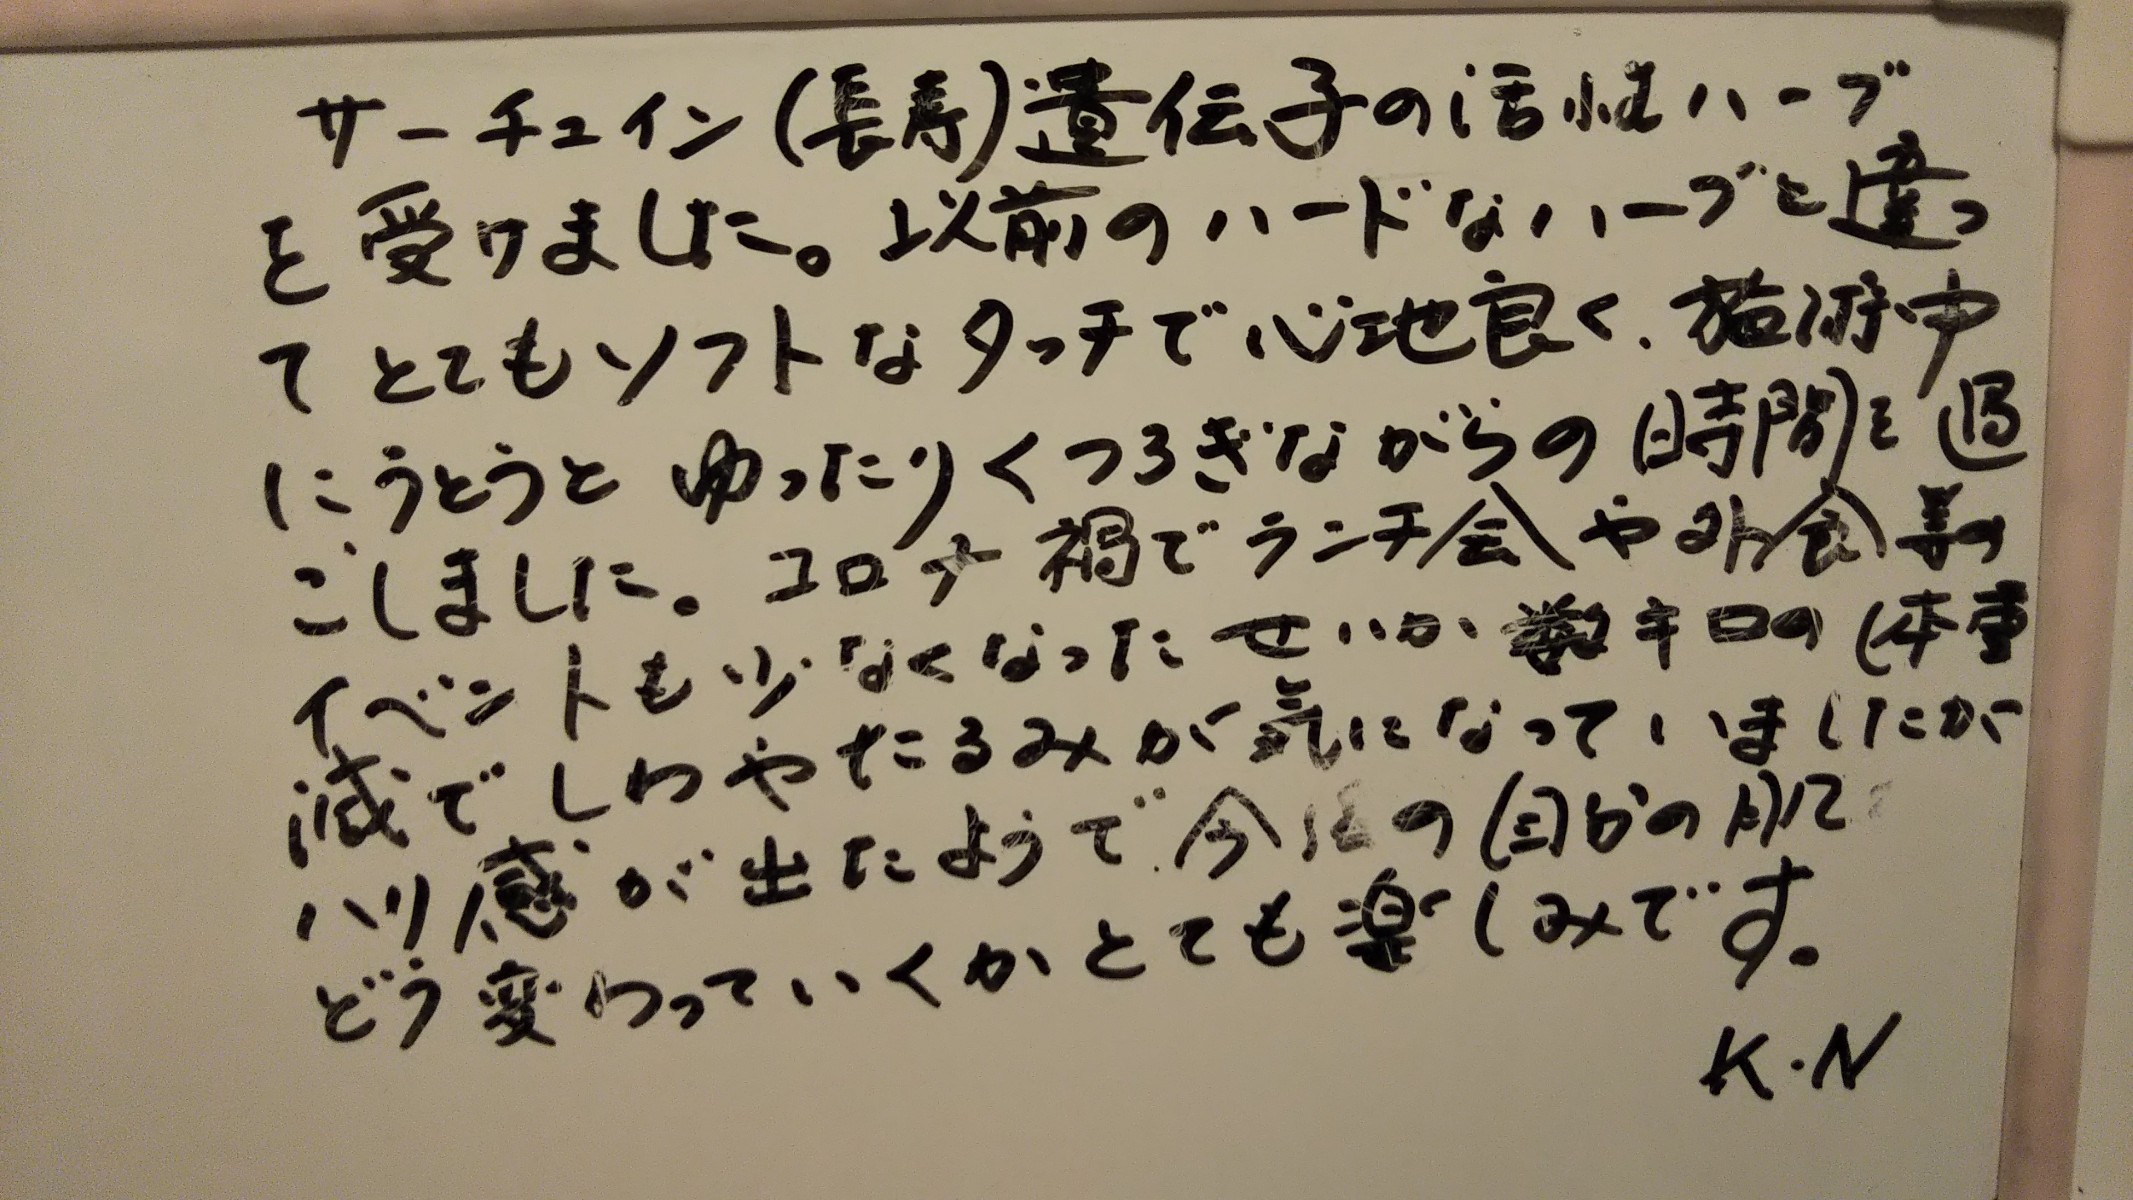 サーチュイン(長寿)遺伝子の活性ハーブ
を受けました。以前のハードなハーブと違っ
てとてもソフトなタッチで心地良く、施術中
にうとうとゆったりくつろぎながらの時間を過
ごしました。コロナ禍でランチ会や外食等の
イベントも少なくなったせいか数キロの体重
減でしわやたるみが気になっていましたが
ハリ感が出たようで今後の自分の肌
どう変わっていくかとても楽しみです。
K.N